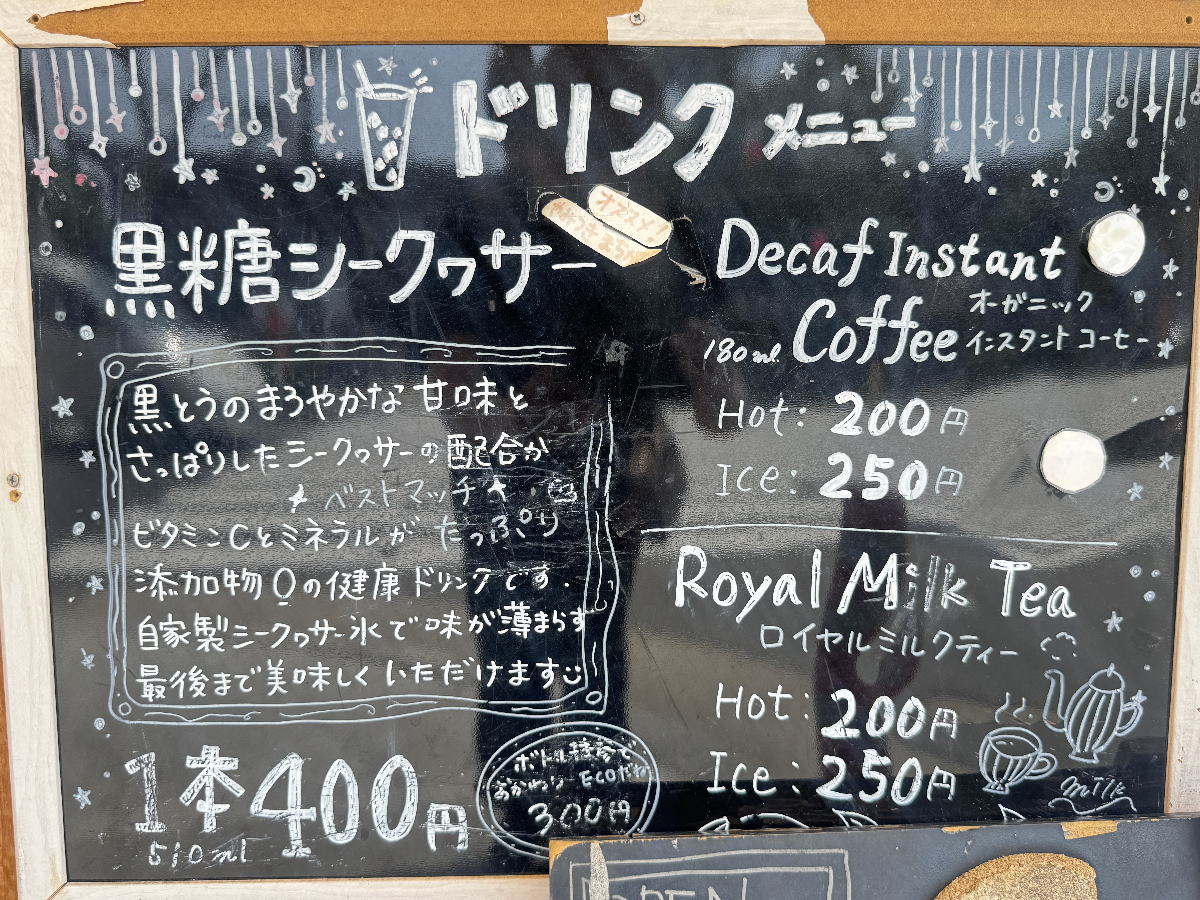 ドリンク メニュー
黒糖シークヮサー
黒とうのまろやかな甘味と
さっぱりしたシークヮサーの配合が
ベストマッチ
ビタミンCとミネラルが たっぷり
添加物0の健康ドリンクです.
自家製シークヮサー氷で味が薄まらず
最後まで美味しくいただけます
1本400円
510ml
ボトル持参で
おかわり ECOだね
300円
Decaf Instant
Coffee
オーガニック
インスタントコーヒー
180ml
Hot: 200円
Ice: 250円
Royal Milk Tea
ロイヤルミルクティー
Hot: 200円
Ice: 250円
milk